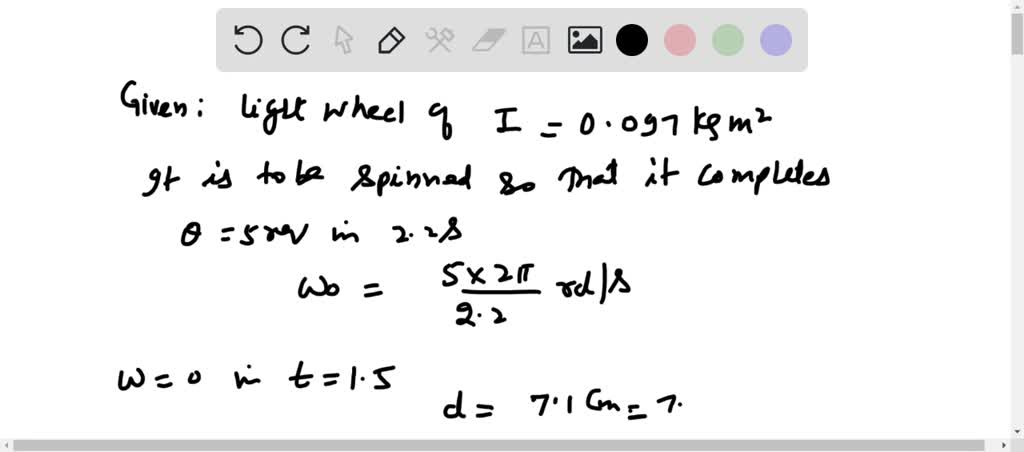 Given: light wheel of I = 0.097 kgm²
It is to be spinned so that it completes
θ = 5 rev in 2.2 s
ω₀ = 5 × 2π / 2.2 rd/s
ω = 0 in t = 1.5
d = 7.1 cm = 7.